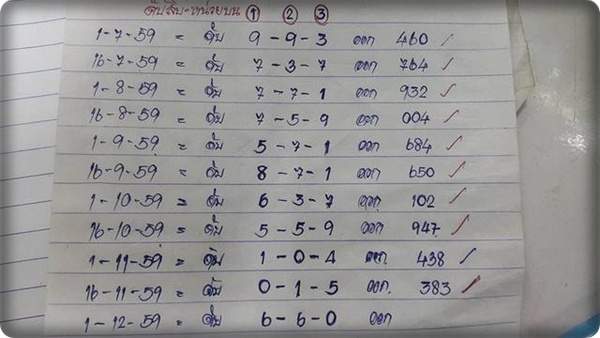 ดับสิบ-หน่วยบน ① ② ③
1-7-59 = ดับ 9-9-3 ออก 460 ✓
16-7-59 = ดับ 7-3-7 ออก 764 ✓
1-8-59 = ดับ 7-7-1 ออก 932 ✓
16-8-59 = ดับ 7-5-9 ออก 004 ✓
1-9-59 = ดับ 5-7-1 ออก 684 ✓
16-9-59 = ดับ 8-7-1 ออก 650 ✓
1-10-59 = ดับ 6-3-7 ออก 102 ✓
16-10-59 = ดับ 5-5-9 ออก 947 ✓
1-11-59 = ดับ 1-0-4 ออก 438 ✓
16-11-59 = ดับ 0-1-5 ออก. 383 ✓
1-12-59 = ดับ 6-6-0 ออก